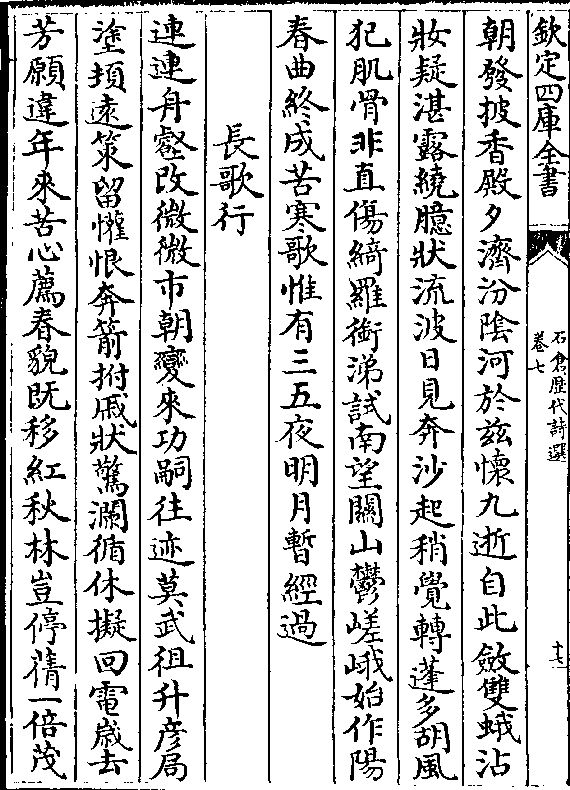 欽定四庫全書
石倉歷代詩選
卷七
十七
朝發披香殿夕濟汾陰河於兹懷九逝自此斂雙蛾沾
妝疑湛露繞臆狀流波日見奔沙起稍覺轉蓬多胡風
犯肌骨非直傷綺羅銜涕試南望關山鬱嵯峨始作陽
春曲終成苦寒歌惟有三五夜明月暫經過
長歌行
連連舟壑改微微市朝變來功嗣往迹莫武徂升彦局
塗頓遠策留懽恨奔箭拊戚狀驚瀾循休擬回電歳去
芳願違年來苦心薦春貌既移紅秋林豈停蒨一倍茂